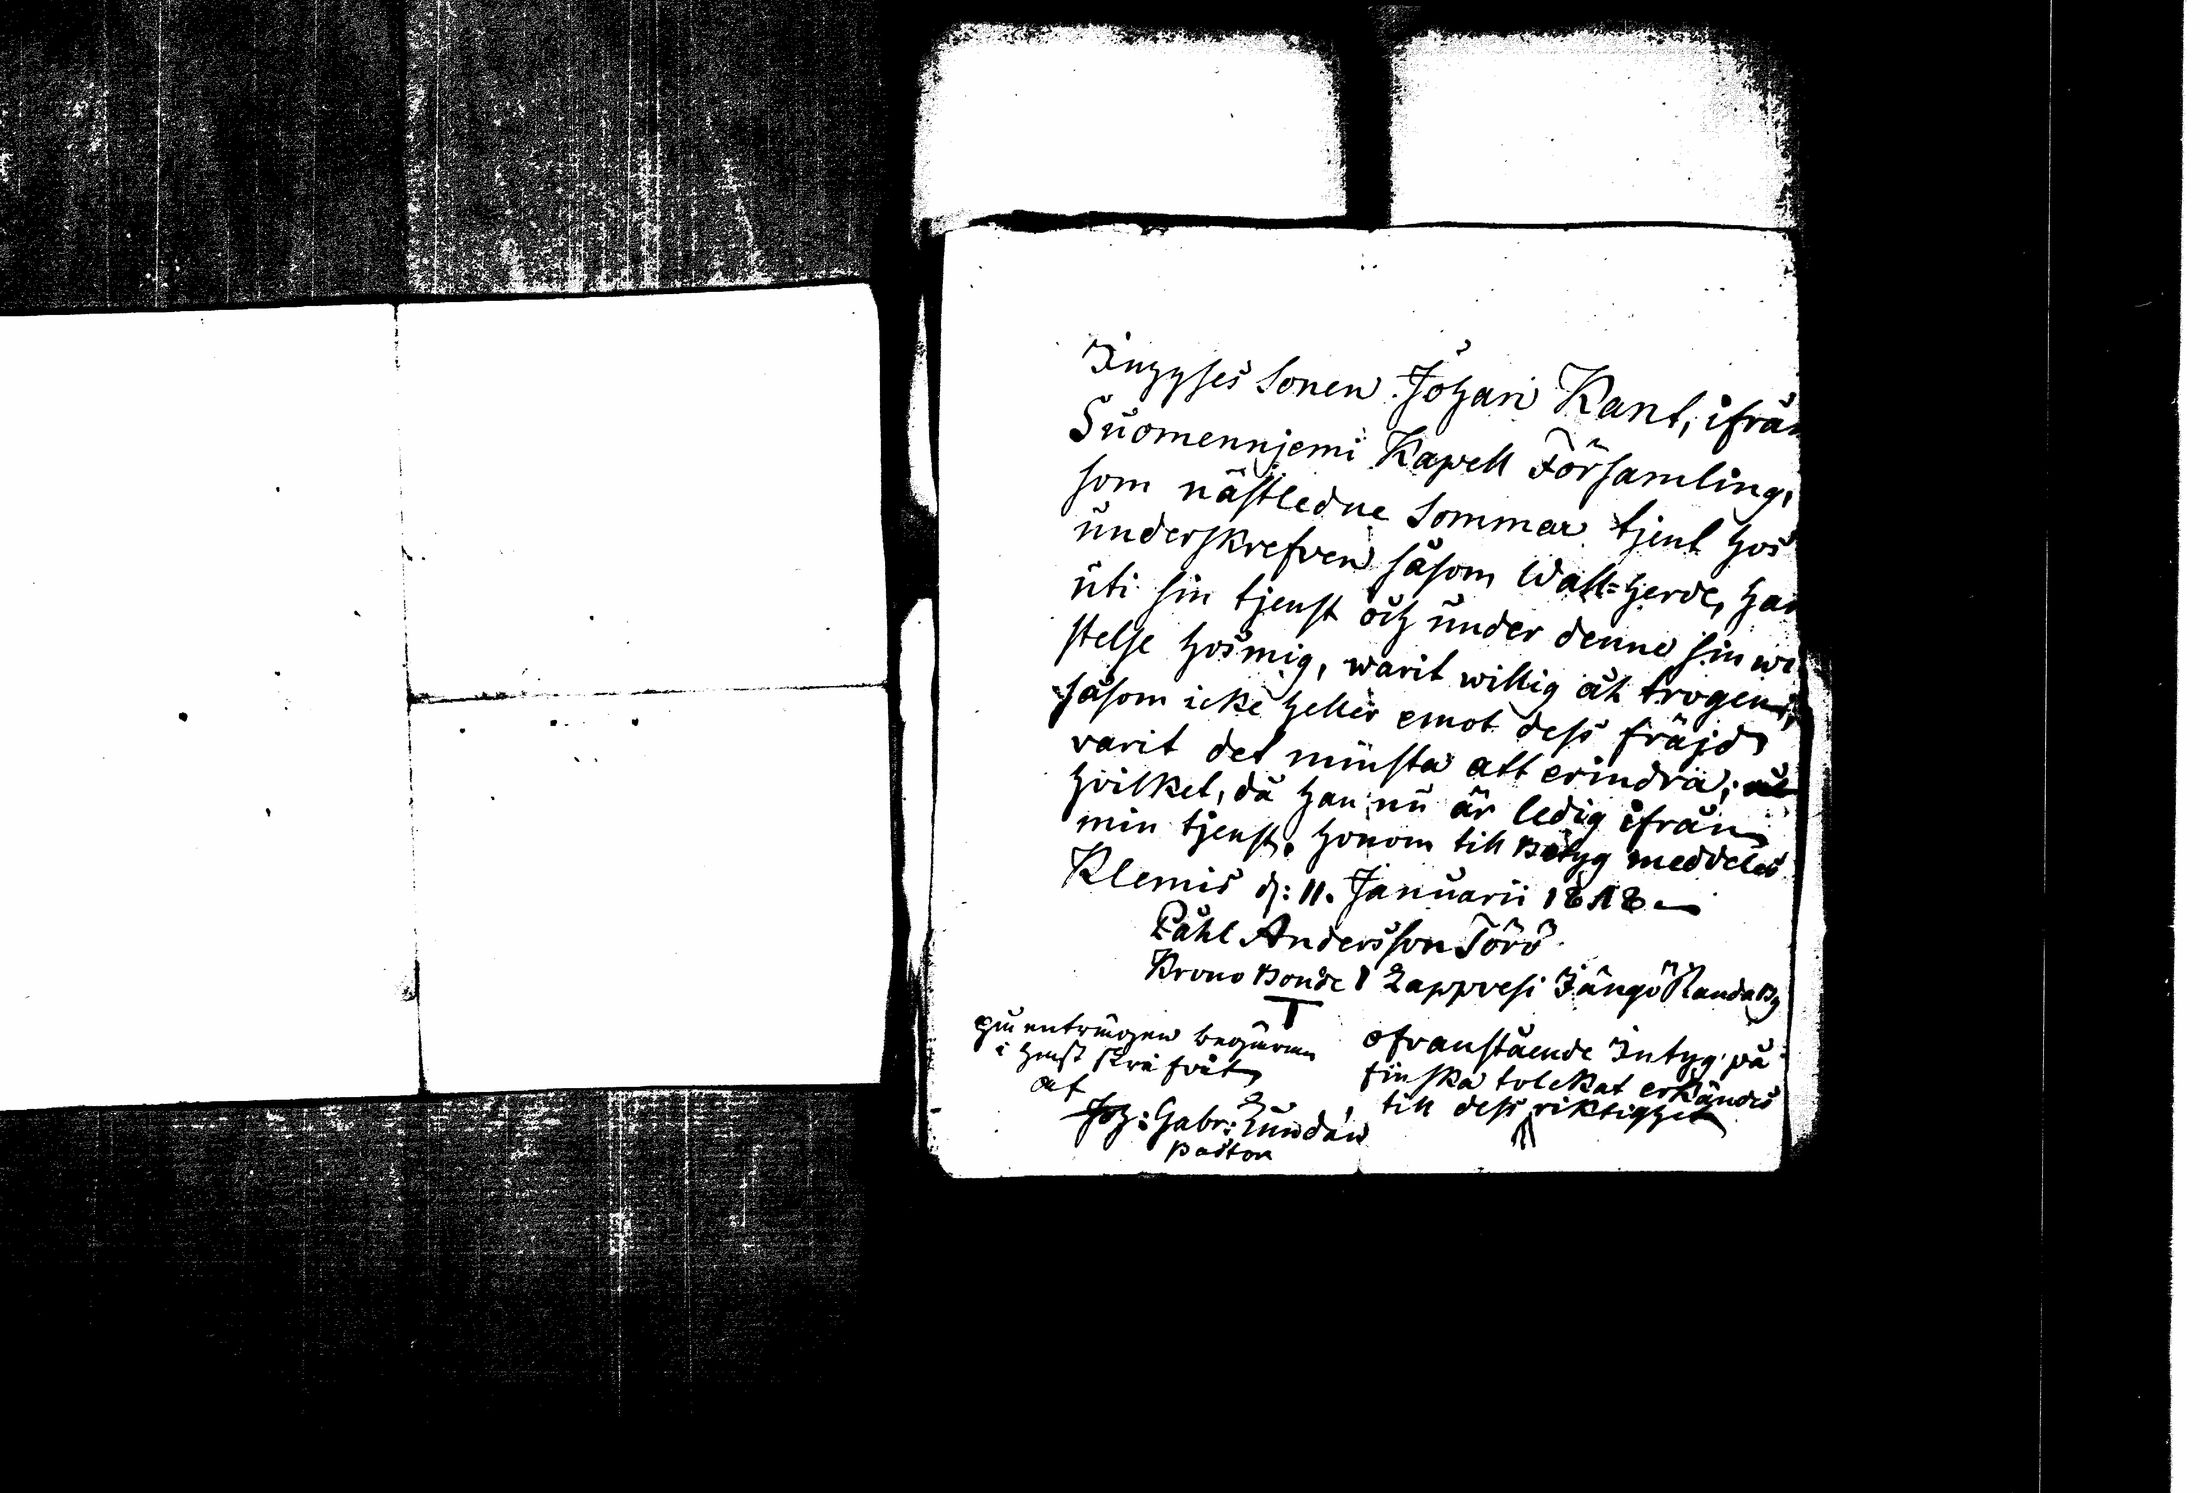 Inhyses Sonen Johan Kant, ifrån
Suomennjemi Kapell Församling,
som nästledne Sommar tjent hos
underskrefven såsom Wall=herde, har
uti sin tjenst och under denne sin wi
stelse hos mig, warit willig åh trogen,
såsom icke heller emot dess fräjd
varit det minsta att erindra;
hvilket, då han nu är ledig ifrån
min tjenst, honom till Betyg meddelas
Klemis d: 11. Januarii 1818.
Påhl Andersson Törö
Krono Bonde i Lappvesi Jängö Randa By
T
på enträgen begäran
i hast skrifvit
af
Joh: Gabr: Lundån
Pastor
ofvanstående Intyg på
finska tolckat erkändes
till dess riktighet